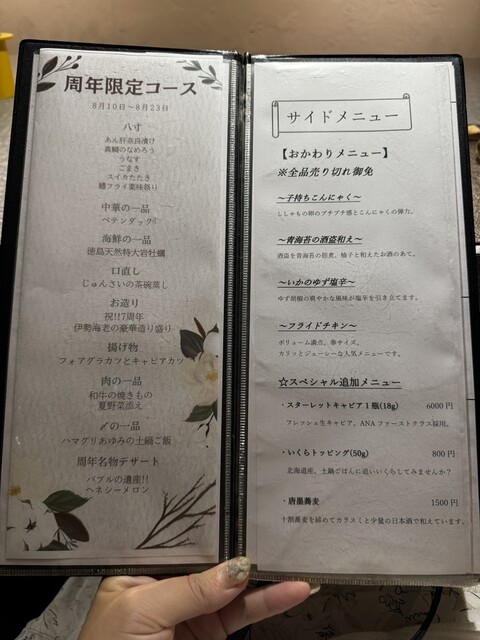 周年限定コース
8月10日～8月23日
八寸
あん肝奈良漬け
真鯛のなめろう
うなす
ごまき
スイカたたき
鱧フライ薬味祭り
中華の一品
ペテンダック!!
海鮮の一品
徳島天然特大岩牡蠣
口直し
じゅんさいの茶碗蒸し
お造り
祝!!7周年
伊勢海老の豪華造り盛り
揚げ物
フォアグラカツとキャビアカツ
肉の一品
和牛の焼きもの
夏野菜添え
〆の一品
ハマグリあゆみの土鍋ご飯
周年名物デザート
バブルの遺産!!
ヘネシーメロン
サイドメニュー
【おかわりメニュー】
※全品売り切れ御免
～子持ちこんにゃく～
ししゃもの卵のプチプチ感とこんにゃくの弾力。
～青海苔の酒盗和え～
酒盗を青海苔の佃煮、柚子と和えたお酒のあて。
～いかのゆず塩辛～
ゆず胡椒の爽やかな風味が塩辛を引き立てます。
～フライドチキン～
ボリューム満点、拳サイズ。
カリッとジューシーな人気メニューです。
☆スペシャル追加メニュー
・スターレットキャビア1瓶(18g) 6000円
フレッシュ生キャビア、ANAファーストクラス採用。
・いくらトッピング(50g) 800円
北海道産、土鍋ごはんに追いいくらしてみませんか?
・唐墨蕎麦 1500円
十割蕎麦を締めてカラスミと少量の日本酒で和えています。